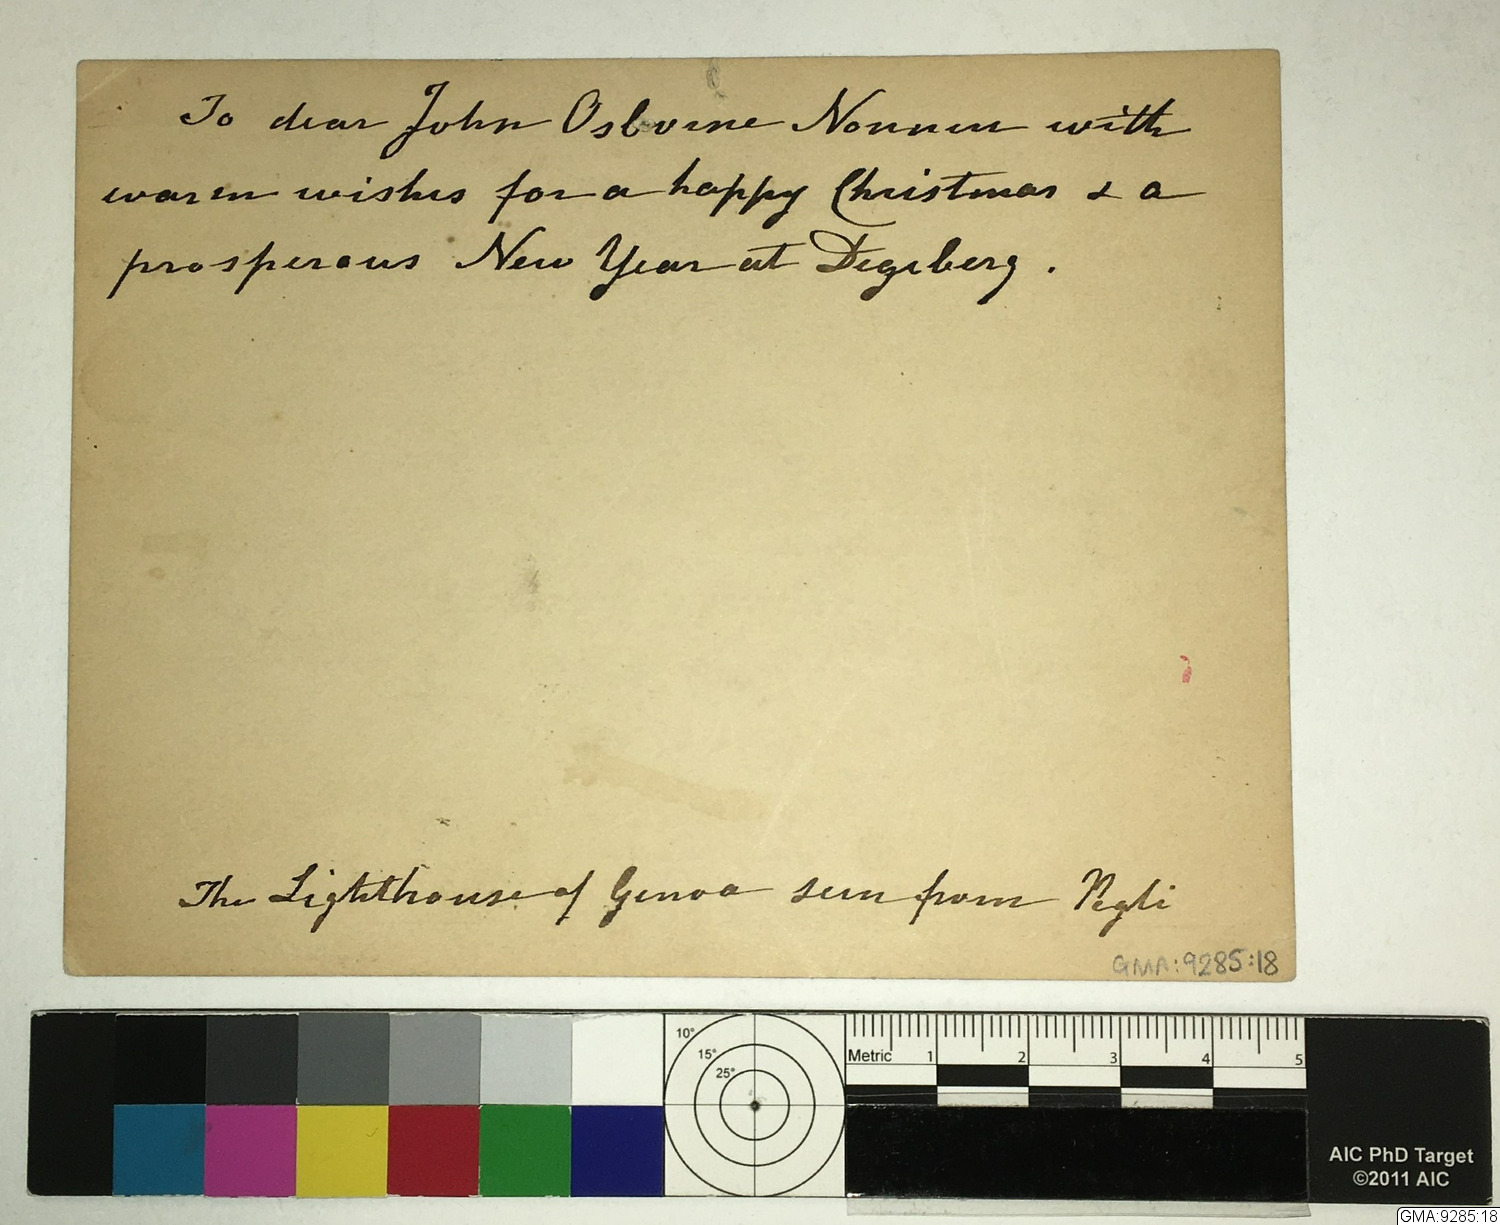 To dear John Osborne Nonnen with
warm wishes for a happy Christmas & a
prosperous New Year at Degeberg.
The Lighthouse of Genoa seen from Pegli
GMA:9285:18
10°
15°
25°
Metric 1 2 3 4 5
AIC PhD Target
©2011 AIC
GMA:9285:18